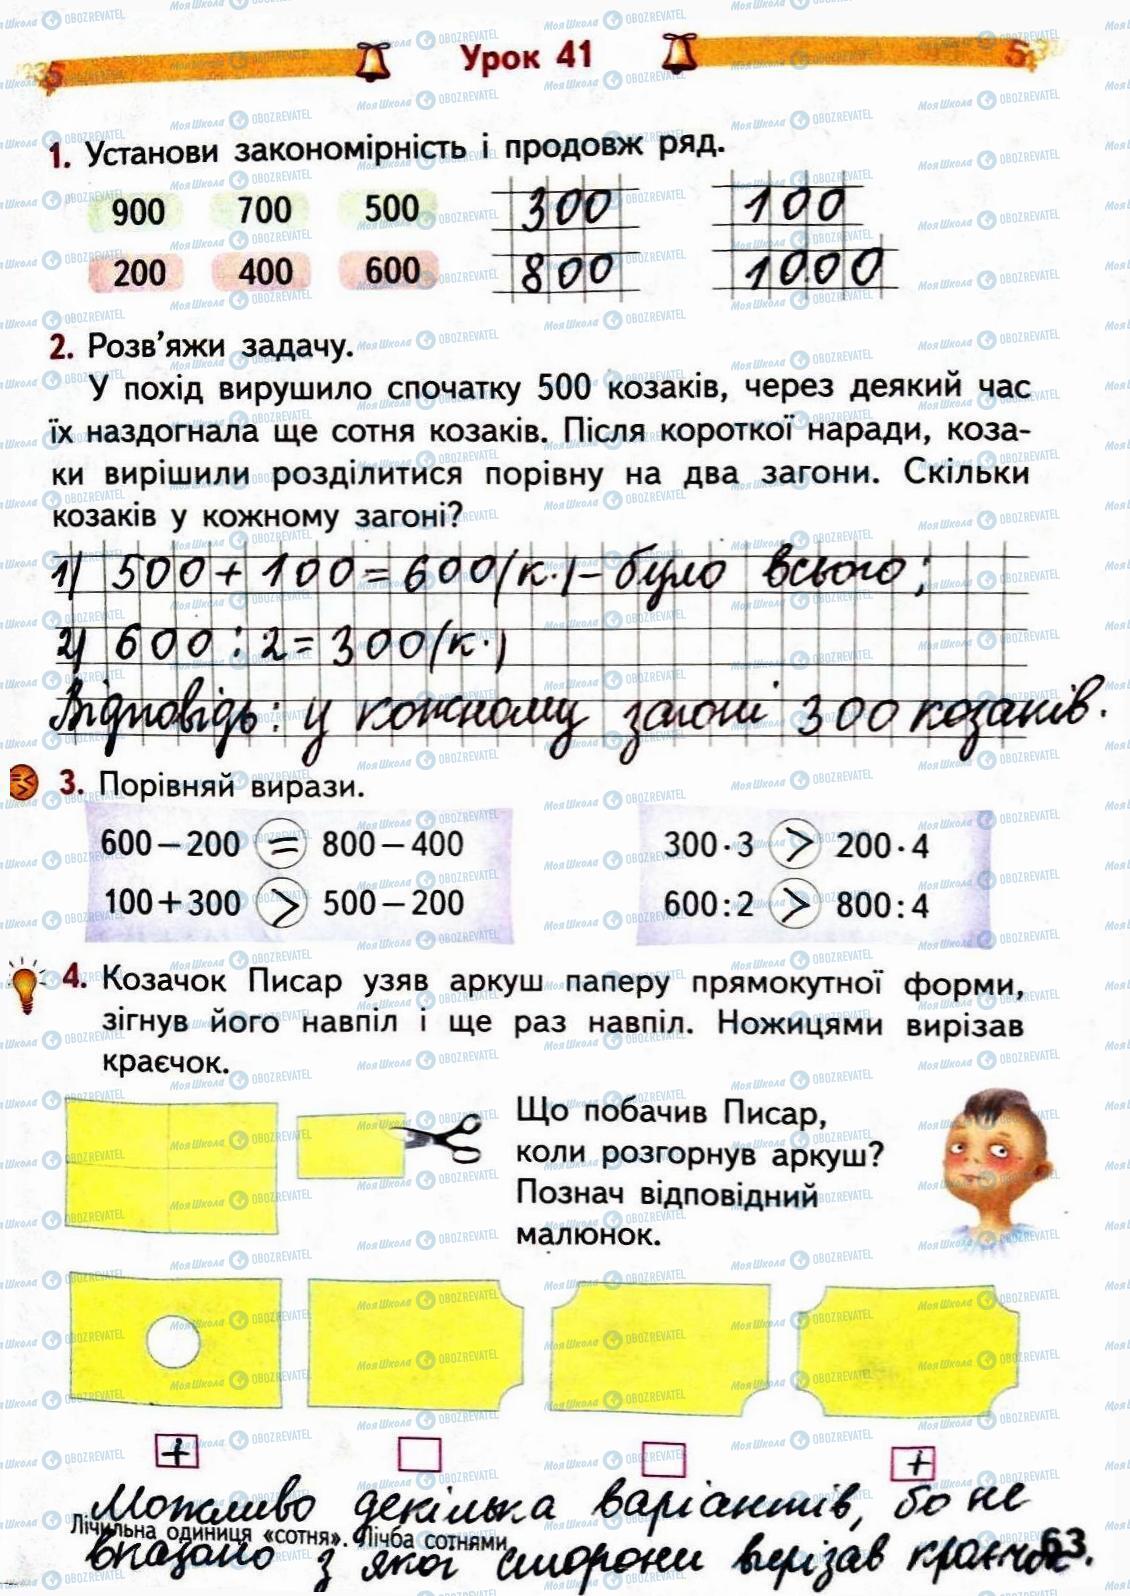 Урок 41
1. Установи закономірність і продовж ряд.
900 700 500 300 100
200 400 600 800 1000
2. Розв’яжи задачу.
У похід вирушило спочатку 500 козаків, через деякий час
їх наздогнала ще сотня козаків. Після короткої наради, коза-
ки вирішили розділитися порівну на два загони. Скільки
козаків у кожному загоні?
1) 500 + 100 = 600 (к.) – було всього;
2) 600 : 2 = 300 (к.)
Відповідь: у кожному загоні 300 козаків.
3. Порівняй вирази.
600 – 200 = 800 – 400 300 · 3 > 200 · 4
100 + 300 > 500 – 200 600 : 2 > 800 : 4
4. Козачок Писар узяв аркуш паперу прямокутної форми,
зігнув його навпіл і ще раз навпіл. Ножицями вирізав
краєчок.
Що побачив Писар,
коли розгорнув аркуш?
Познач відповідний
малюнок.
+ +
Можливо декілька варіантів, бо не
Лічильна одиниця «сотня». Лічба сотнями. 63
вказано з якої сторони вирізав краєчок.
МояШкола OBOZREVATEL